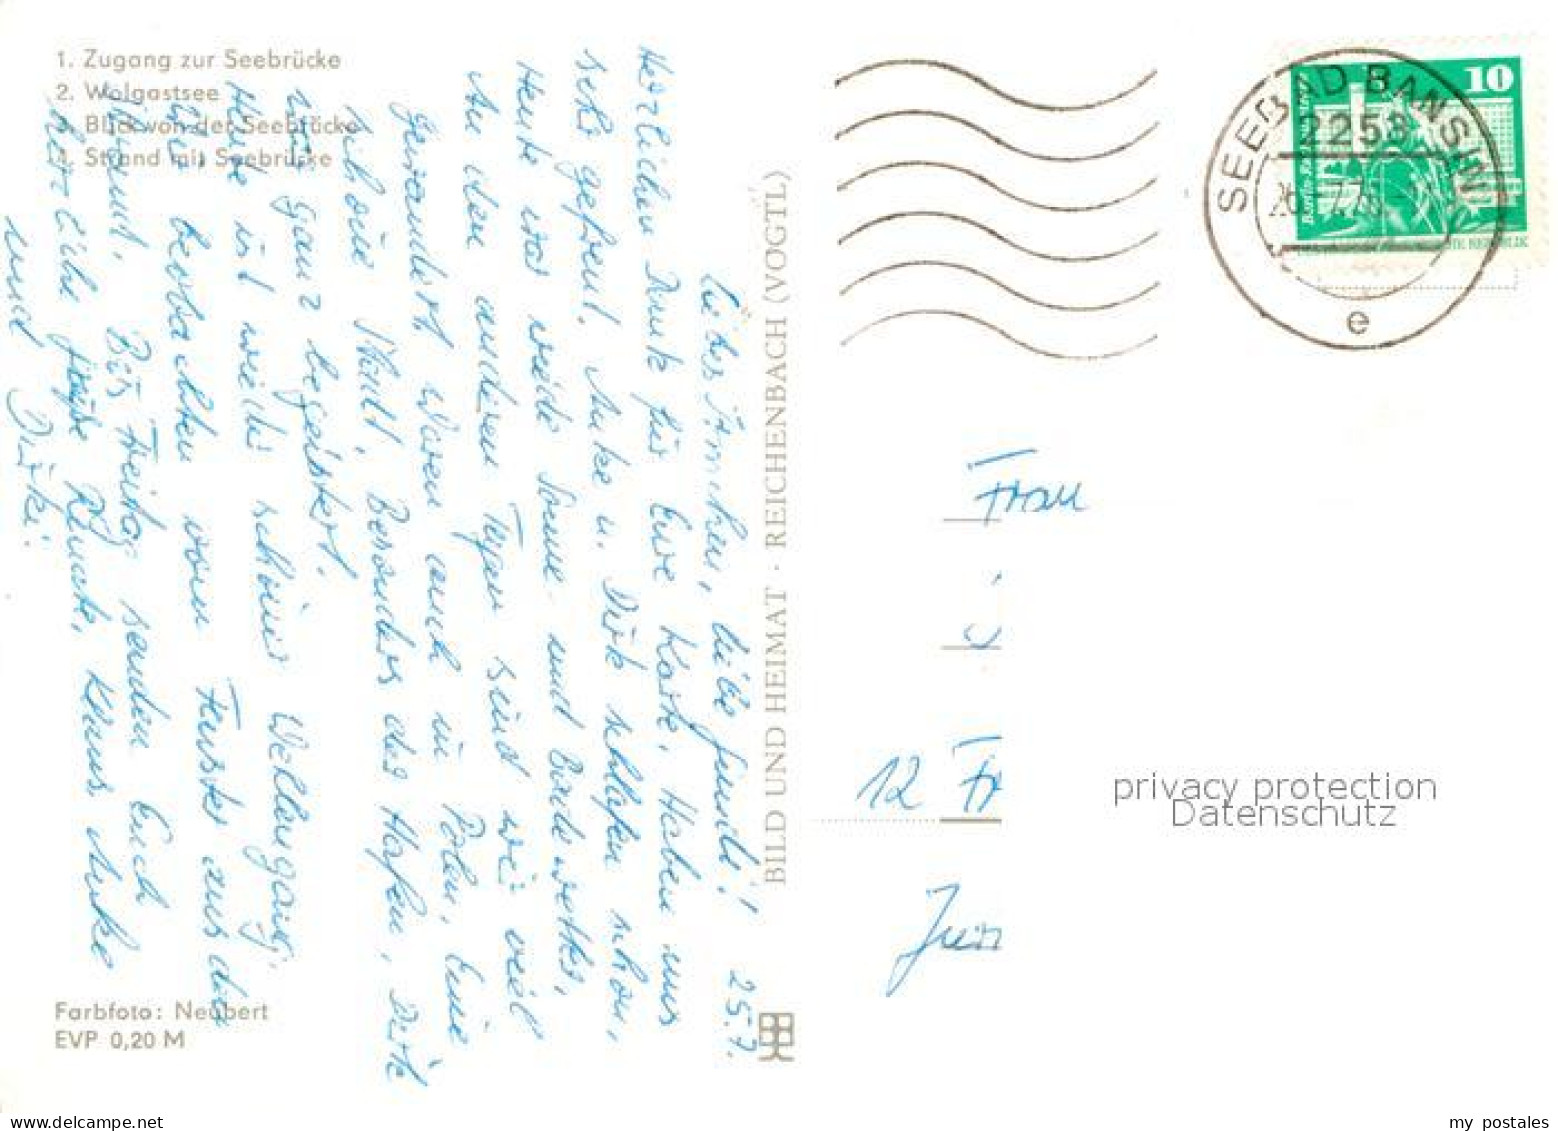 1. Zugang zur Seebrücke
2. Wolgastsee
3. Blick von der Seebrücke
4. Strand mit Seebrücke
25.7.
Liebes Ännchen, liebe
Herzlichen Dank für Eure Karte. Haben uns
sehr gefreut. Anke u. Dirk schlafen schon.
Heute war wieder Sonne und Badewetter.
An den anderen Tagen sind wir viel
gewandert. Waren auch in Polen. Eine
schöne Stadt. Besonders der Hafen. Dirk
war ganz begeistert.
Heute ist wieder schöner Wellengang.
Wir beobachten vom Fenster aus den
Bis Freitag senden Euch
herzliche Grüße Renate, Klaus, Anke
und Dirk.
Farbfoto: Neubert
EVP 0,20 M
BILD UND HEIMAT · REICHENBACH (VOGTL)
SEEBAD BANSIN
2253
e
10
Frau
12 Fr
privacy protection
Datenschutz
my postales